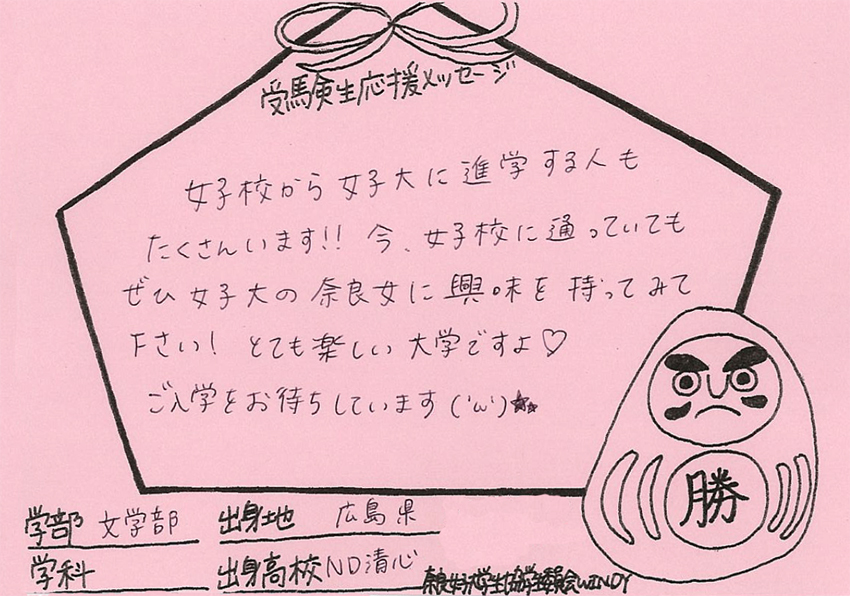 受験生応援メッセージ
女子校から女子大に進学する人も
たくさんいます!! 今、女子校に通っていても
ぜひ女子大の奈良女に興味を持ってみて
下さい! とても楽しい大学ですよ♡
ご入学をお待ちしています('ω')★☆
勝
学部 文学部 出身地 広島県
学科 出身高校 ND清心
奈良女子大学生協学生委員会WINDY